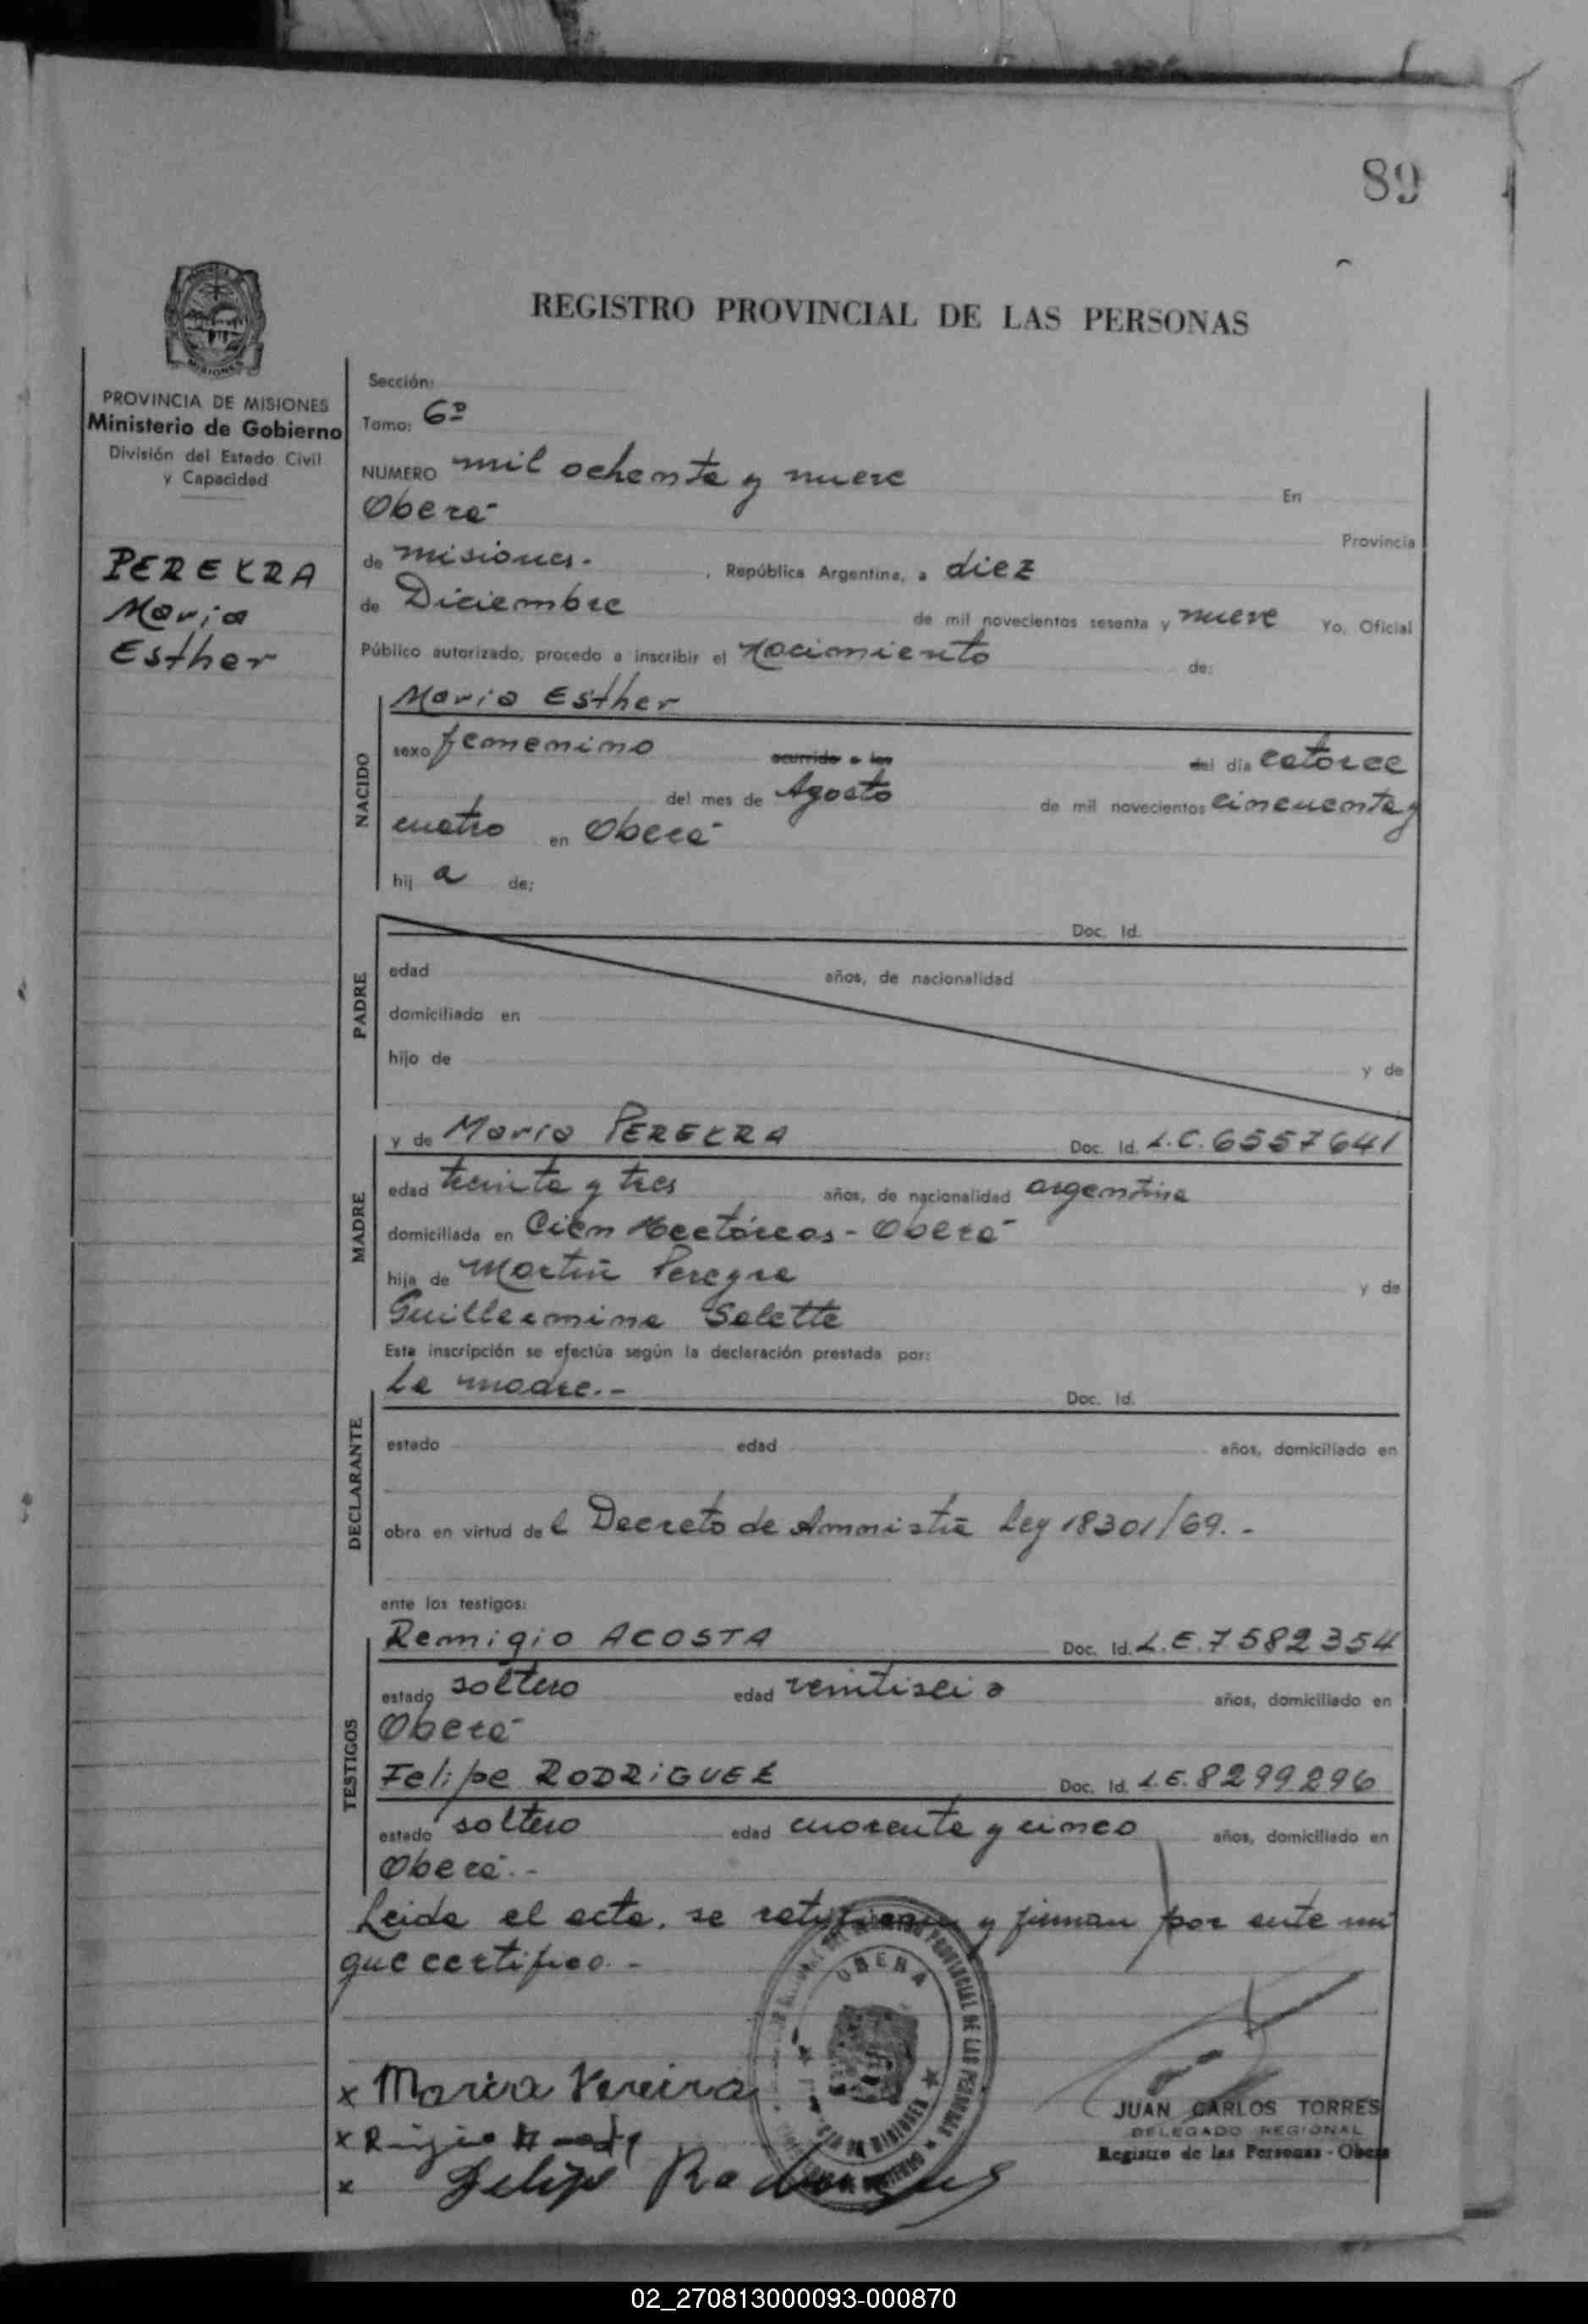 89
REGISTRO PROVINCIAL DE LAS PERSONAS
MISIONES
PROVINCIA DE MISIONES
Ministerio de Gobierno
División del Estado Civil
y Capacidad
PEREYRA
Maria
Esther
Sección:
Tomo: 6º
NUMERO mil ochenta y nueve En
Oberá
Provincia
de misiones. , República Argentina, a diez
de Diciembre de mil novecientos sesenta y nueve Yo, Oficial
Público autorizado, procedo a inscribir el nacimiento de:
NACIDO
Maria Esther
sexo femenino ocurrido a las del día catorce
del mes de Agosto de mil novecientos cincuenta y
cuatro en Oberá
hij a de:
PADRE
Doc. Id.
edad años, de nacionalidad
domiciliado en
hijo de y de
MADRE
y de Maria PEREYRA Doc. Id. L.C. 6557641
edad treinta y tres años, de nacionalidad argentina
domiciliada en Cien Hectáreas - Oberá
hija de Martín Pereyra y de
Guillermina Salette
Esta inscripción se efectúa según la declaración prestada por:
DECLARANTE
La madre.- Doc. Id.
estado edad años, domiciliado en
obra en virtud de l Decreto de Amnistía Ley 18301/69.-
ante los testigos:
TESTIGOS
Remigio ACOSTA Doc. Id. L.E. 7582354
estado soltero edad veintiseis años, domiciliado en
Oberá
Felipe RODRIGUEZ Doc. Id. L.E. 8299296
estado soltero edad cuarenta y cinco años, domiciliado en
Oberá.-
Leida el acta, se ratifican y firman por ante mi
que certifico.-
OBERA
PROVINCIAL DE LAS PERSONAS
x Maria Pereira
x
x Felipe Rodrigues
JUAN CARLOS TORRES
DELEGADO REGIONAL
Registro de las Personas - Oberá
02_270813000093-000870